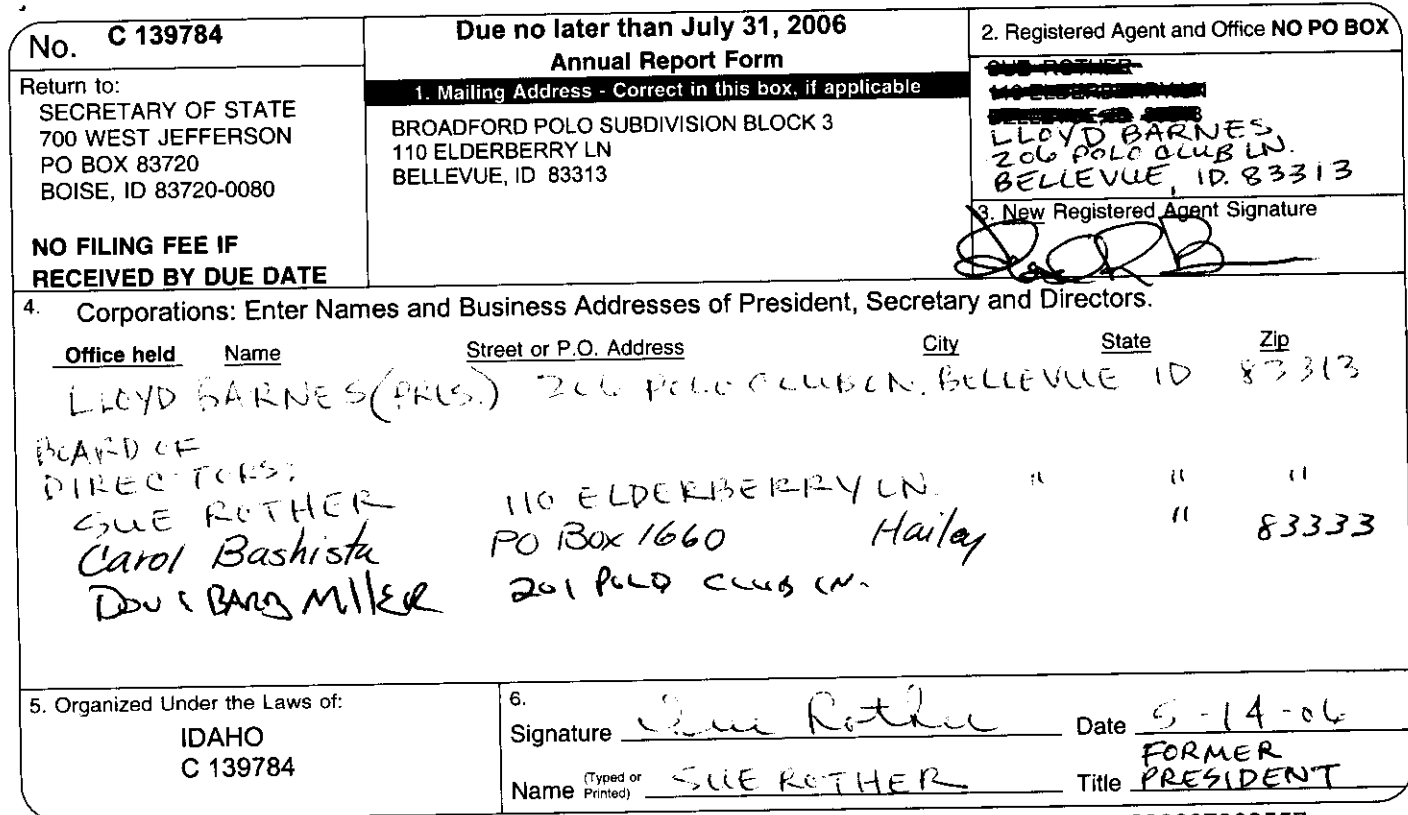 No. C 139784
Return to:
SECRETARY OF STATE
700 WEST JEFFERSON
PO BOX 83720
BOISE, ID 83720-0080
NO FILING FEE IF
RECEIVED BY DUE DATE
Due no later than July 31, 2006
Annual Report Form
1. Mailing Address - Correct in this box, if applicable
BROADFORD POLO SUBDIVISION BLOCK 3
110 ELDERBERRY LN
BELLEVUE, ID 83313
2. Registered Agent and Office NO PO BOX
SUE ROTHER
110 ELDERBERRY LN
BELLEVUE, ID 83313
LLOYD BARNES,
206 POLO CLUB LN.
BELLEVUE, ID. 83313
3. New Registered Agent Signature
4. Corporations: Enter Names and Business Addresses of President, Secretary and Directors.
Office held Name Street or P.O. Address City State Zip
LLOYD BARNES (PRES.) 206 POLO CLUB LN. BELLEVUE ID 83313
BOARD OF
DIRECTORS:
SUE ROTHER 110 ELDERBERRY LN. " " "
Carol Bashista PO Box 1660 Hailey " 83333
DOU & BARB MIllER 201 POLO CLUB LN.
5. Organized Under the Laws of:
IDAHO
C 139784
6.
Signature Sue Rother Date 5-14-06
Name (Typed or Printed) SUE ROTHER Title FORMER PRESIDENT